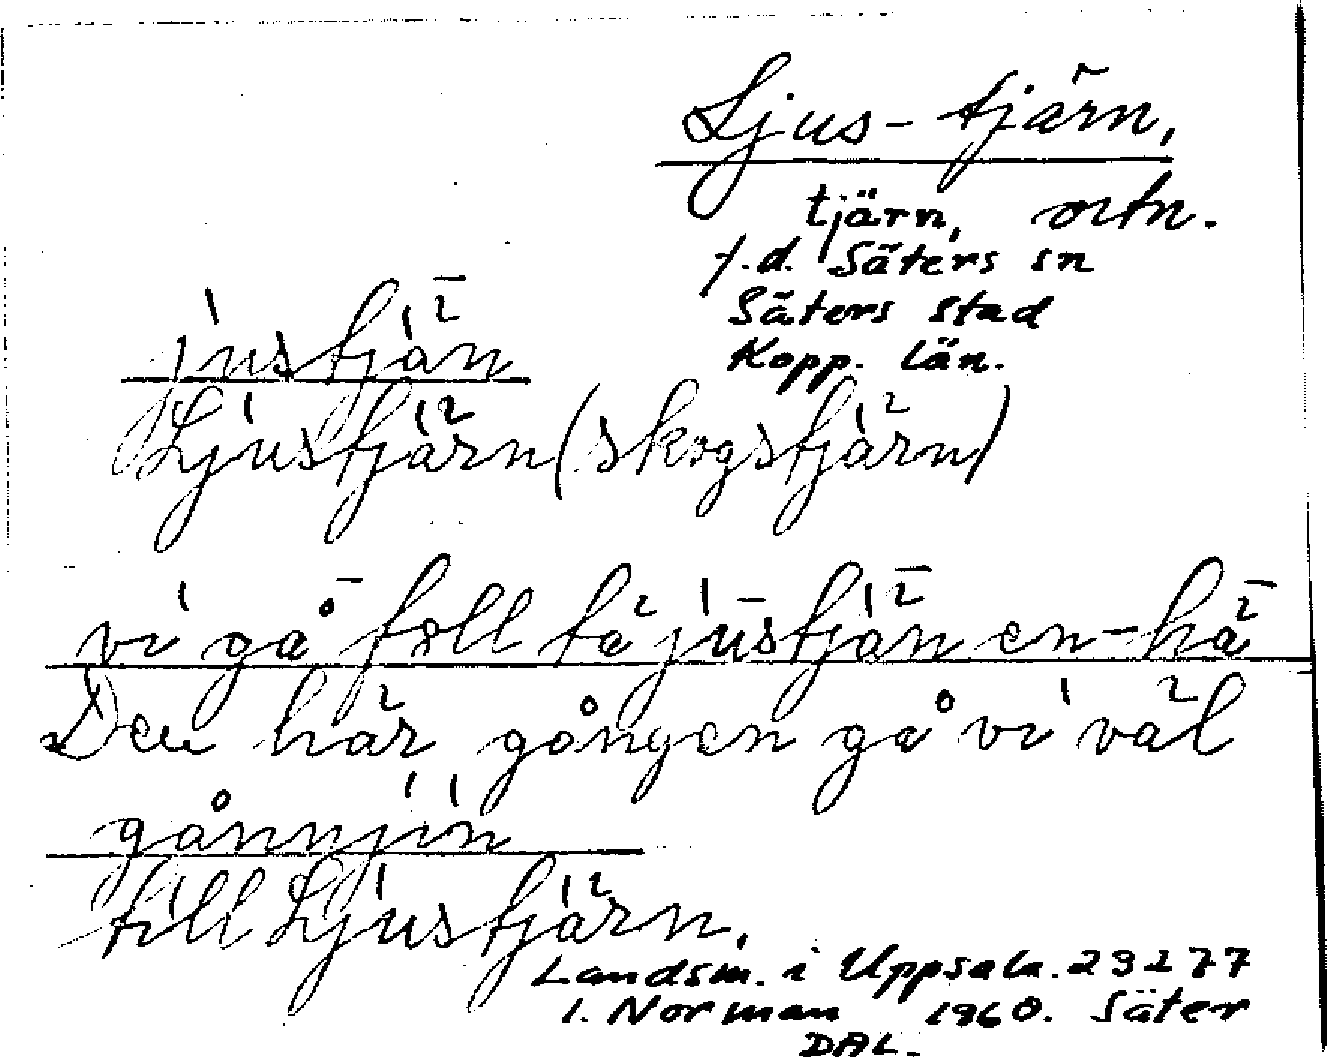 Ljus-tjärn,
tjärn, ortn.
f.d. Säters sn
Säters stad
Kopp. län.
justjän
Ljustjärn (skogstjärn)
vi gå foll tä justjän en-hä
Den här gången gå vi väl
gånnjin
till Ljustjärn.
Landsm. i Uppsala. 23277
I. Norman 1960. Säter
DAL.